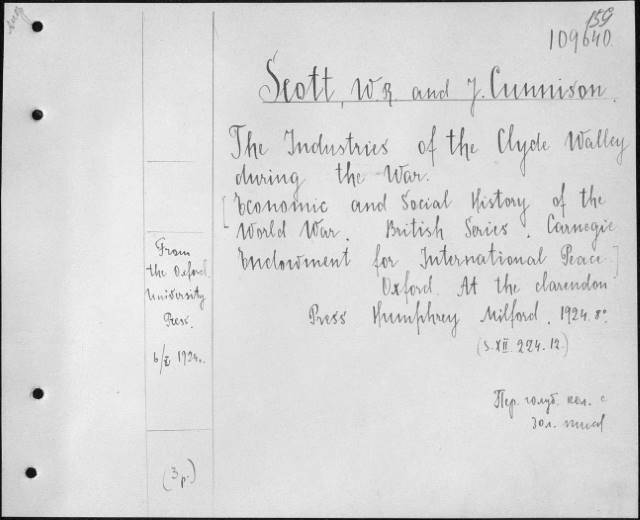 159
109640
Scott, W. R. and J. Cunnison.
The Industries of the Clyde Walley
during the War.
[Economic and Social History of the
World War. British Series. Carnegie
Endowment for International Peace]
Oxford. At the clarendon
Press Humphrey Milford. 1924. 8º
(S. XII. 224. 12.)
From
the Oxford
University
Press.
6/X 1924.
(3 р.)
Пер. голуб. кол. с
зол. тисн